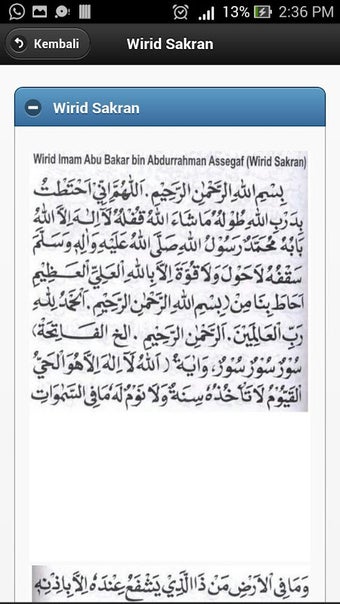 13% 2:36 PM
Kembali
Wirid Sakran
Wirid Sakran
Wirid Imam Abu Bakar bin Abdurrahman Assegaf (Wirid Sakran)
بِسْمِ اللهِ الرَّحْمٰنِ الرَّحِيْمِ. اَللّٰهُمَّ اِنِّيْ اَحْتَطْتُ
بِدَرْبِ اللهِ طُوْلُهُ مَاشَاءَ اللهُ قُفْلُهُ لَا اِلٰهَ اِلَّا اللهُ
بَابُهُ مُحَمَّدٌ رَسُوْلُ اللهِ صَلَّى اللهُ عَلَيْهِ وَاٰلِهِ وَسَلَّمَ
سَقْفُهُ لَاحَوْلَ وَلَا قُوَّةَ اِلَّا بِاللهِ الْعَلِيِّ الْعَظِيْمِ
اَحَاطَ بِنَا مِنْ (بِسْمِ اللهِ الرَّحْمٰنِ الرَّحِيْمِ. اَلْحَمْدُ لِلّٰهِ
رَبِّ الْعَالَمِيْنَ. الرَّحْمٰنِ الرَّحِيْمِ. الخ الفَاتِحَة)
سُوْرٌ سُوْرٌ سُوْرٌ، وَاٰيَةُ (اَللهُ لَا اِلٰهَ اِلَّا هُوَ الْحَيُّ
الْقَيُّوْمُ لَا تَأْخُذُهُ سِنَةٌ وَلَا نَوْمٌ لَهُ مَا فِى السَّمٰوَاتِ
وَمَا فِى الْاَرْضِ مَنْ ذَا الَّذِيْ يَشْفَعُ عِنْدَهُ اِلَّا بِاِذْنِهِ